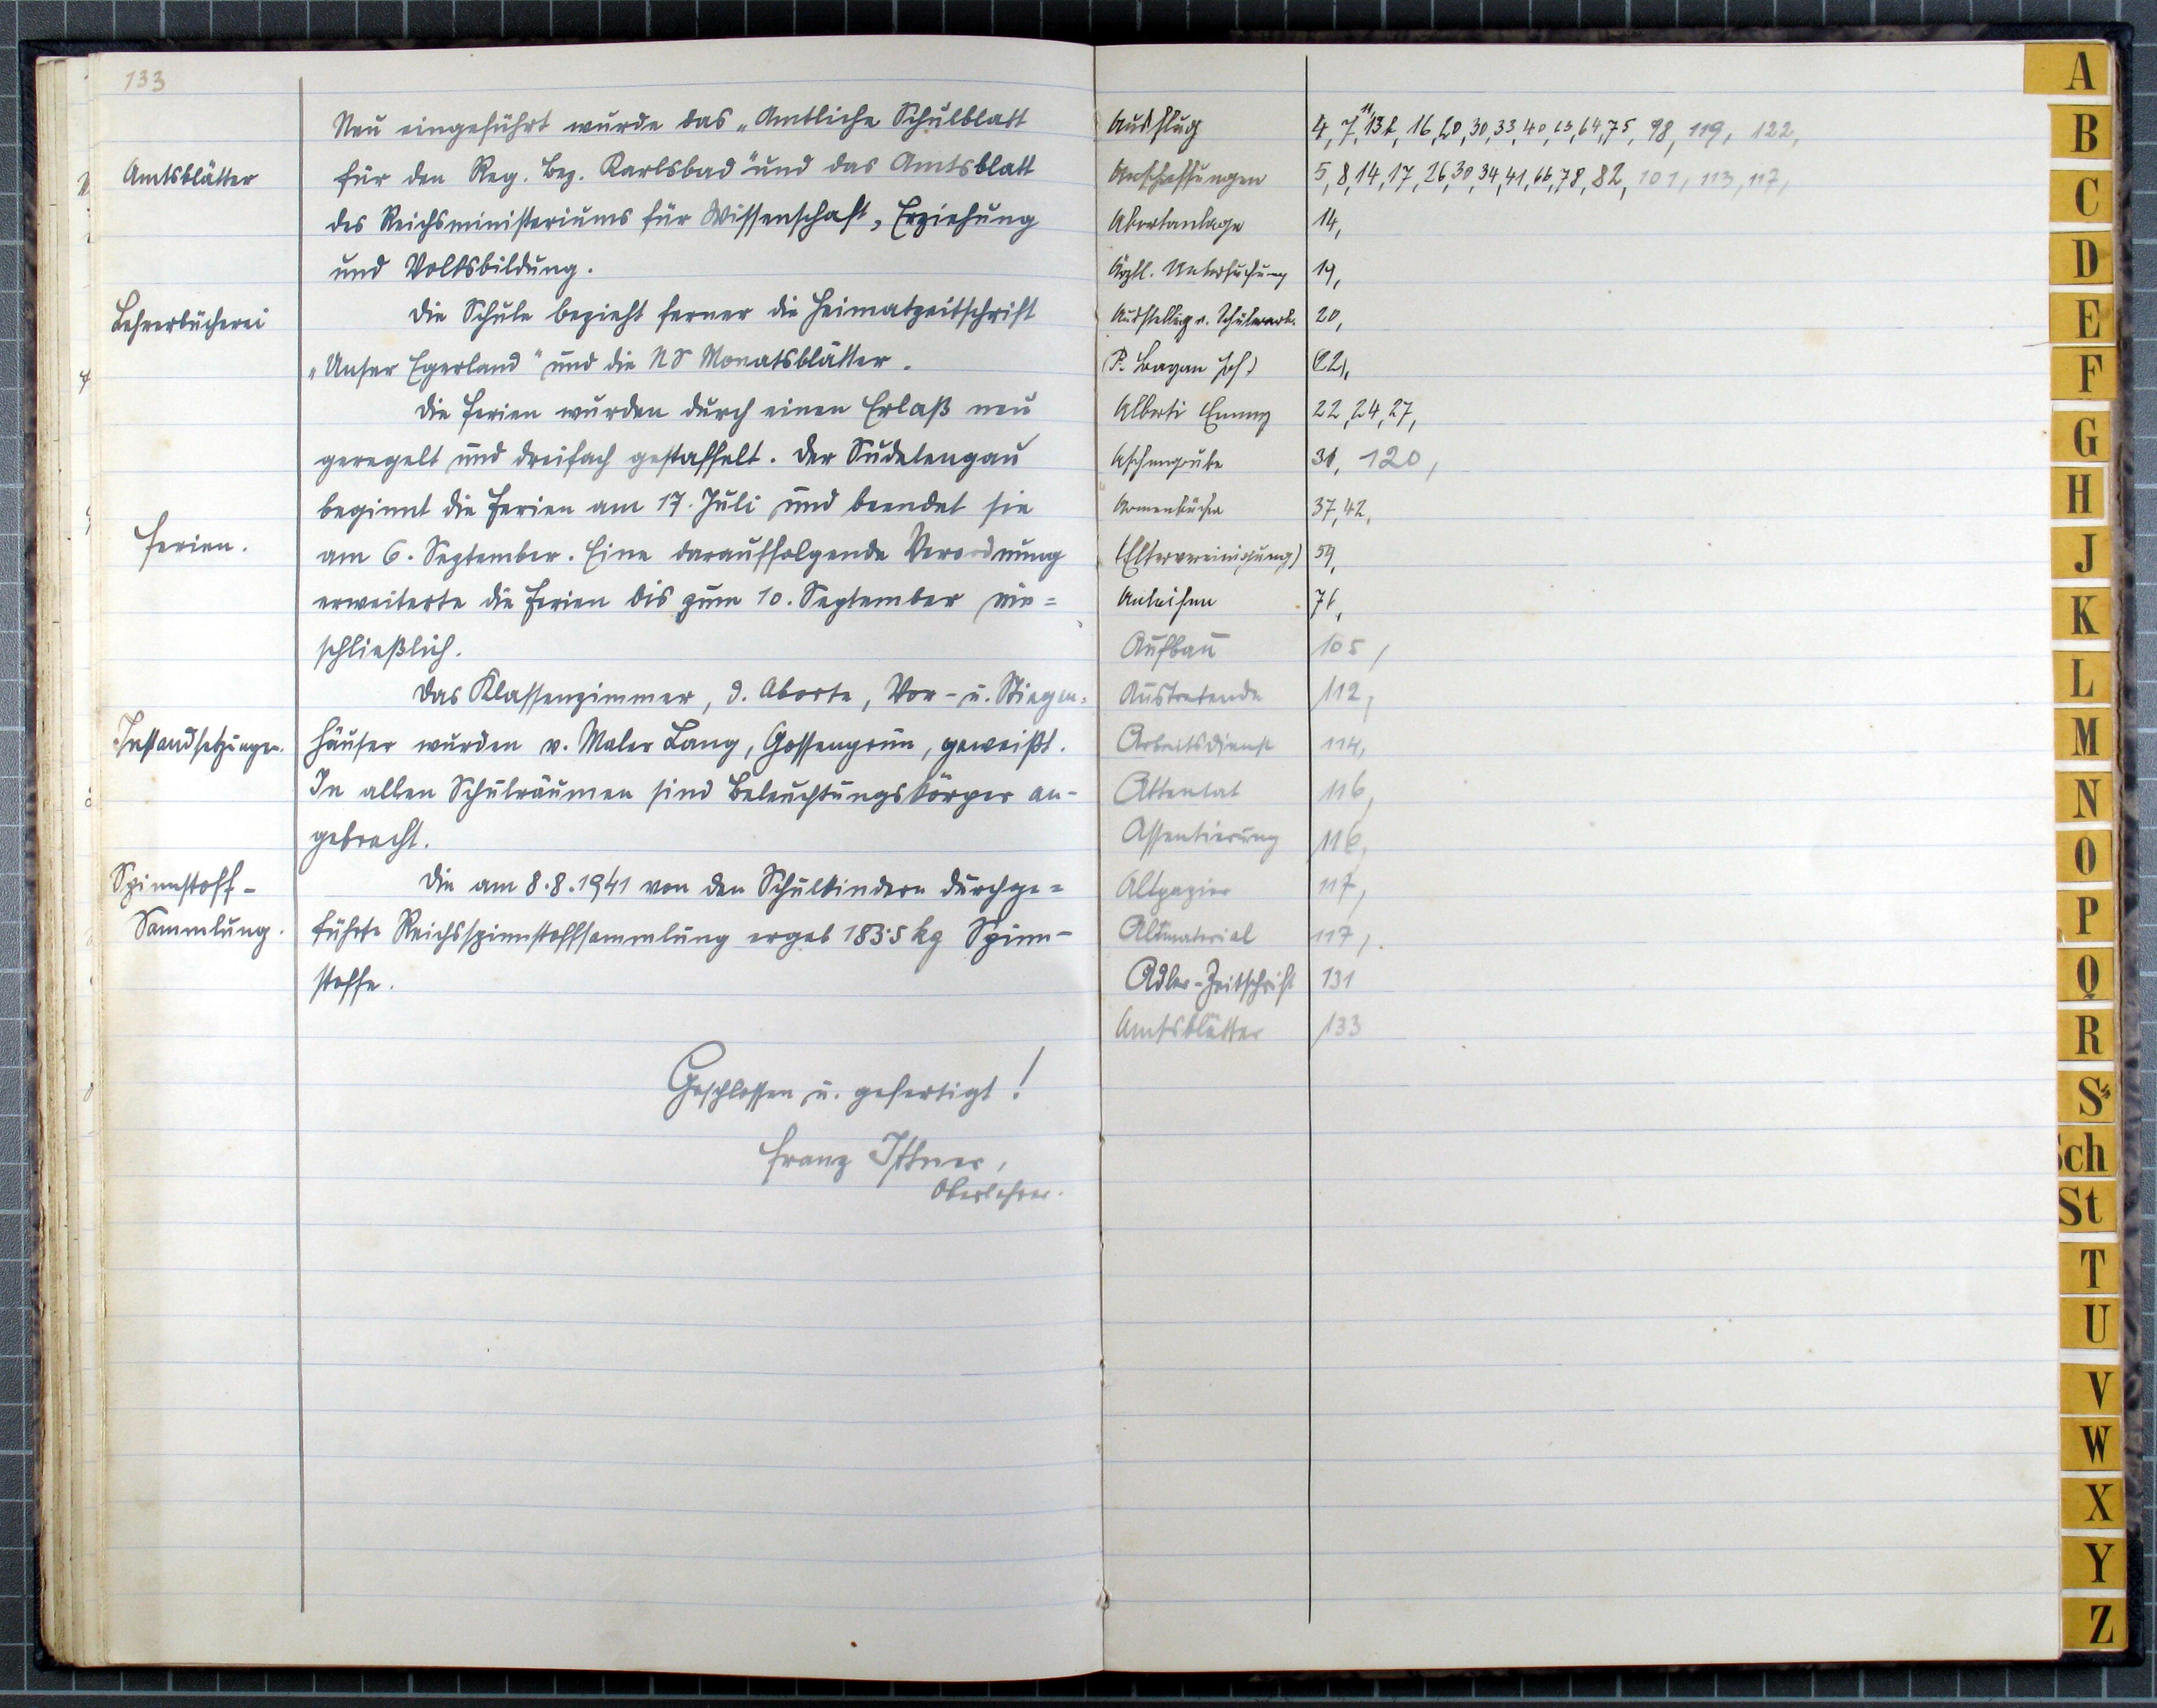 133
Neu eingeführt wurde das „Amtliche Schulblatt
Amtsblätter
für den Reg. Bez. Karlsbad" und das Amtsblatt
des Reichsministeriums für Wissenschaft, Erziehung
und Volksbildung.
Lehrerbücherei
Die Schule bezieht ferner die Heimatzeitschrift
„Unser Egerland" und die NS Monatsblätter.
Die Ferien wurden durch einen Erlaß neu
geregelt und dreifach gestaffelt. Der Sudetengau
beginnt die Ferien am 17. Juli und beendet sie
Ferien.
am 6. September. Eine darauffolgende Verordnung
erweiterte die Ferien bis zum 10. September ein=
schließlich.
Das Klassenzimmer, d. Aborte, Vor- u. Stiegen=
Instandsetzungen.
häuser wurden v. Maler Lang, Gossengrün, geweißt.
In allen Schulräumen sind Beleuchtungskörper an-
gebracht.
Spinnstoff-
Sammlung.
Die am 8.8.1941 von den Schulkindern durchge=
führte Reichsspinnstoffsammlung ergab 183·5 kg Spinn-
stoffe.
Geschlossen u. gefertigt!
Franz
Oberlehrer.
Ausflug 4, 7, 11 13f, 16, 20, 30, 33, 40, 63, 64, 75, 98, 119, 122,
Anschaffungen 5, 8, 14, 17, 26, 30, 34, 41, 66, 78, 82, 101, 113, 117,
Abortanlage 14,
Ärztl. Untersuchung 19,
Ausstellung v. 20,
22,
Alberti Emmy 22, 24, 27,
Aschengrube 31, 120,
Armenbücher 37, 42,
(Elternvereinigung) 59,
Anleihen 71,
Aufbau 105,
Austretende 112,
Arbeitsdienst 114,
Attentat 116,
Assentierung 116,
Altpapier 117,
Altmaterial 117,
Adler-Zeitschrift 131
Amtsblätter 133
A
B
C
D
E
F
G
H
J
K
L
M
N
O
P
Q
R
S
Sch
St
T
U
V
W
X
Y
Z